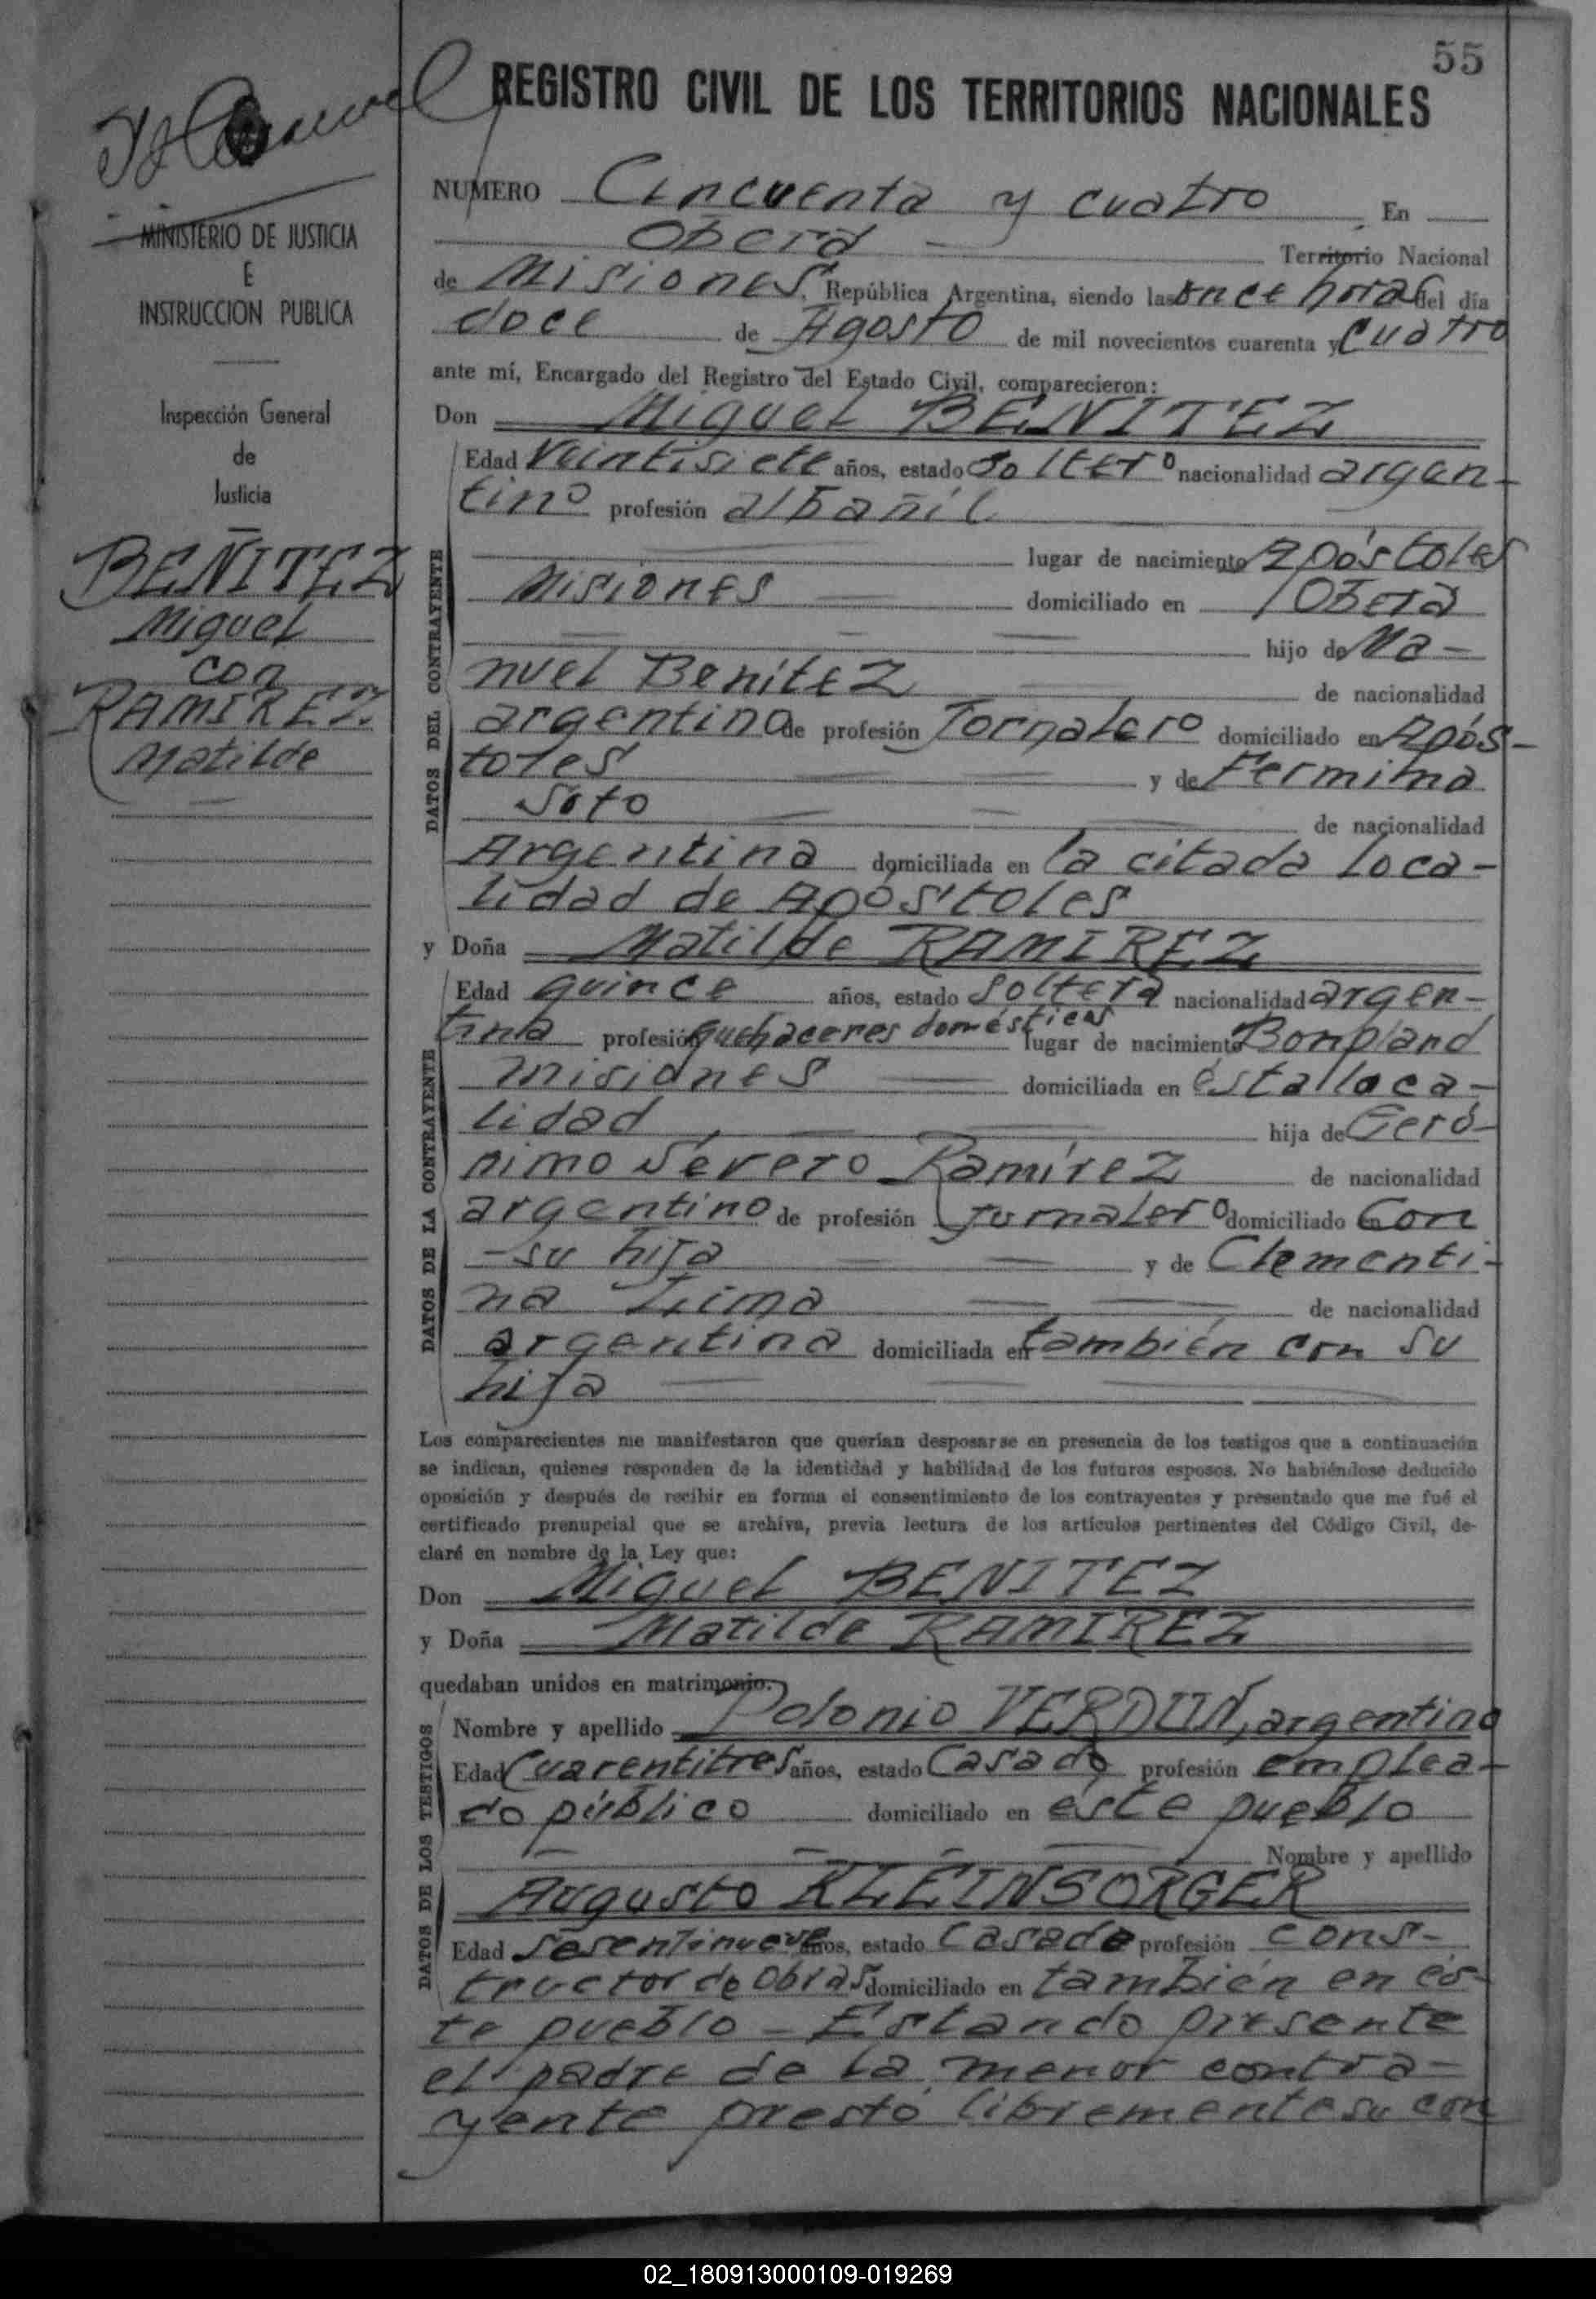 55
REGISTRO CIVIL DE LOS TERRITORIOS NACIONALES
NUMERO Cincuenta y cuatro En
Oberá Territorio Nacional
de Misiones República Argentina, siendo las once horas del día
doce de Agosto de mil novecientos cuarenta y cuatro
ante mí, Encargado del Registro del Estado Civil, comparecieron:
Don Miguel BENITEZ
Edad Veintisiete años, estado Soltero nacionalidad argen-
tino profesión albañil
lugar de nacimiento Apóstoles
Misiones domiciliado en Oberá
hijo de Ma-
nuel Benítez de nacionalidad
argentina de profesión Jornalero domiciliado en Após-
toles y de Fermina
Soto de nacionalidad
Argentina domiciliada en la citada loca-
lidad de Apóstoles
y Doña Matilde RAMIREZ
Edad quince años, estado Soltera nacionalidad argen-
tina profesión quehaceres domésticos lugar de nacimiento Bonpland
Misiones domiciliada en ésta loca-
lidad hija de Geró-
nimo Severo Ramírez de nacionalidad
argentino de profesión Jornalero domiciliado en con
su hija y de Clementi-
na Lima de nacionalidad
argentina domiciliada en también con su
hija
DATOS DEL CONTRAYENTE
DATOS DE LA CONTRAYENTE
Los comparecientes me manifestaron que querían desposarse en presencia de los testigos que a continuación
se indican, quienes responden de la identidad y habilidad de los futuros esposos. No habiéndose deducido
oposición y después de recibir en forma el consentimiento de los contrayentes y presentado que me fué el
certificado prenupcial que se archiva, previa lectura de los artículos pertinentes del Código Civil, de-
claré en nombre de la Ley que:
Don Miguel BENITEZ
y Doña Matilde RAMIREZ
quedaban unidos en matrimonio.
Nombre y apellido Polonio VERDUN, argentino
Edad Cuarentitres años, estado Casado profesión emplea-
do público domiciliado en éste pueblo
Nombre y apellido
Augusto KLEINSORGER
Edad Sesentinueve años, estado Casado profesión cons-
tructor de obras domiciliado en también en és-
te pueblo - Estando presente
el padre de la menor contra-
yente prestó libremente su con
DATOS DE LOS TESTIGOS
MINISTERIO DE JUSTICIA
E
INSTRUCCION PUBLICA
Inspección General
de
Justicia
BENITEZ
Miguel
con
RAMIREZ
Matilde
02_180913000109-019269